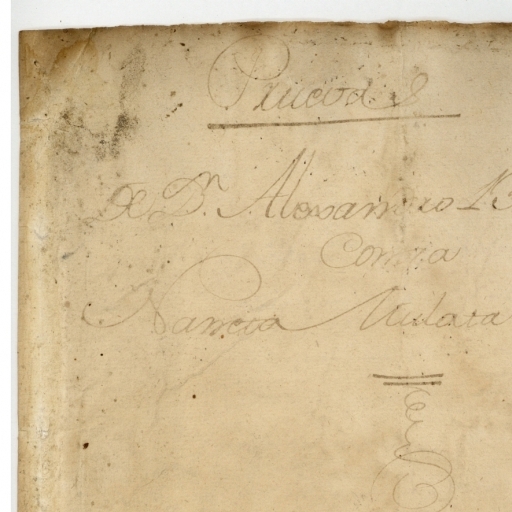 Pruevas
de Dn. Alexandro
Contra
Nancia Mulata